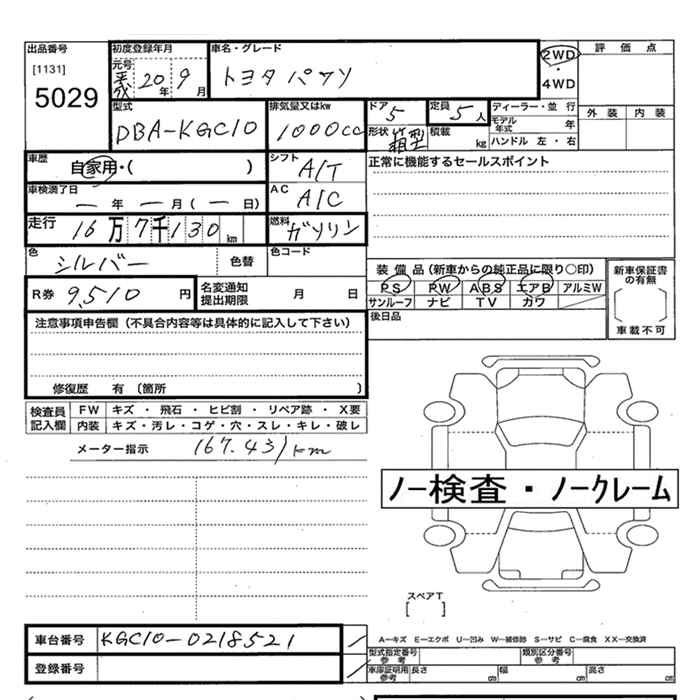 出品番号 初度登録年月 車名・グレード 2WD 評価点
[1131] 元号 平成 20年 9月 トヨタ パッソ ・
5029 4WD
型式 排気量又はkw ドア 5 定員 5人 ディーラー・並行 外装 内装
DBA-KGC10 1000cc 形状 箱型 積載 kg モデル年式 年
ハンドル 左・右
車歴 自家用・( ) シフト A/T 正常に機能するセールスポイント
車検満了日 ー年ー月(ー日) AC A/C
走行 16万7千130km 燃料 ガソリン
色 シルバー 色替 色コード
装備品(新車からの純正品に限り○印) 新車保証書の有無
R券 9,510円 名変通知提出期限 月 日 PS PW ABS エアB アルミW
サンルーフ ナビ TV カワ
[ ]
車載不可
注意事項申告欄(不具合内容等は具体的に記入して下さい) 後日品
修復歴 有 〔箇所 )
検査員記入欄 FW キズ・飛石・ヒビ割・リペア跡・X要
内装 キズ・汚レ・コゲ・穴・スレ・キレ・破レ
メーター指示 167.431km
ノー検査・ノークレーム
スペアT
[ ]
車台番号 KGC10-0218521
A-キズ E-エクボ U-凹み W-補修跡 S-サビ C-腐食 XX-交換済
登録番号 型式指定番号 参考 類別区分番号 参考
車庫証明用 参考 長さ cm 幅 cm 高さ cm